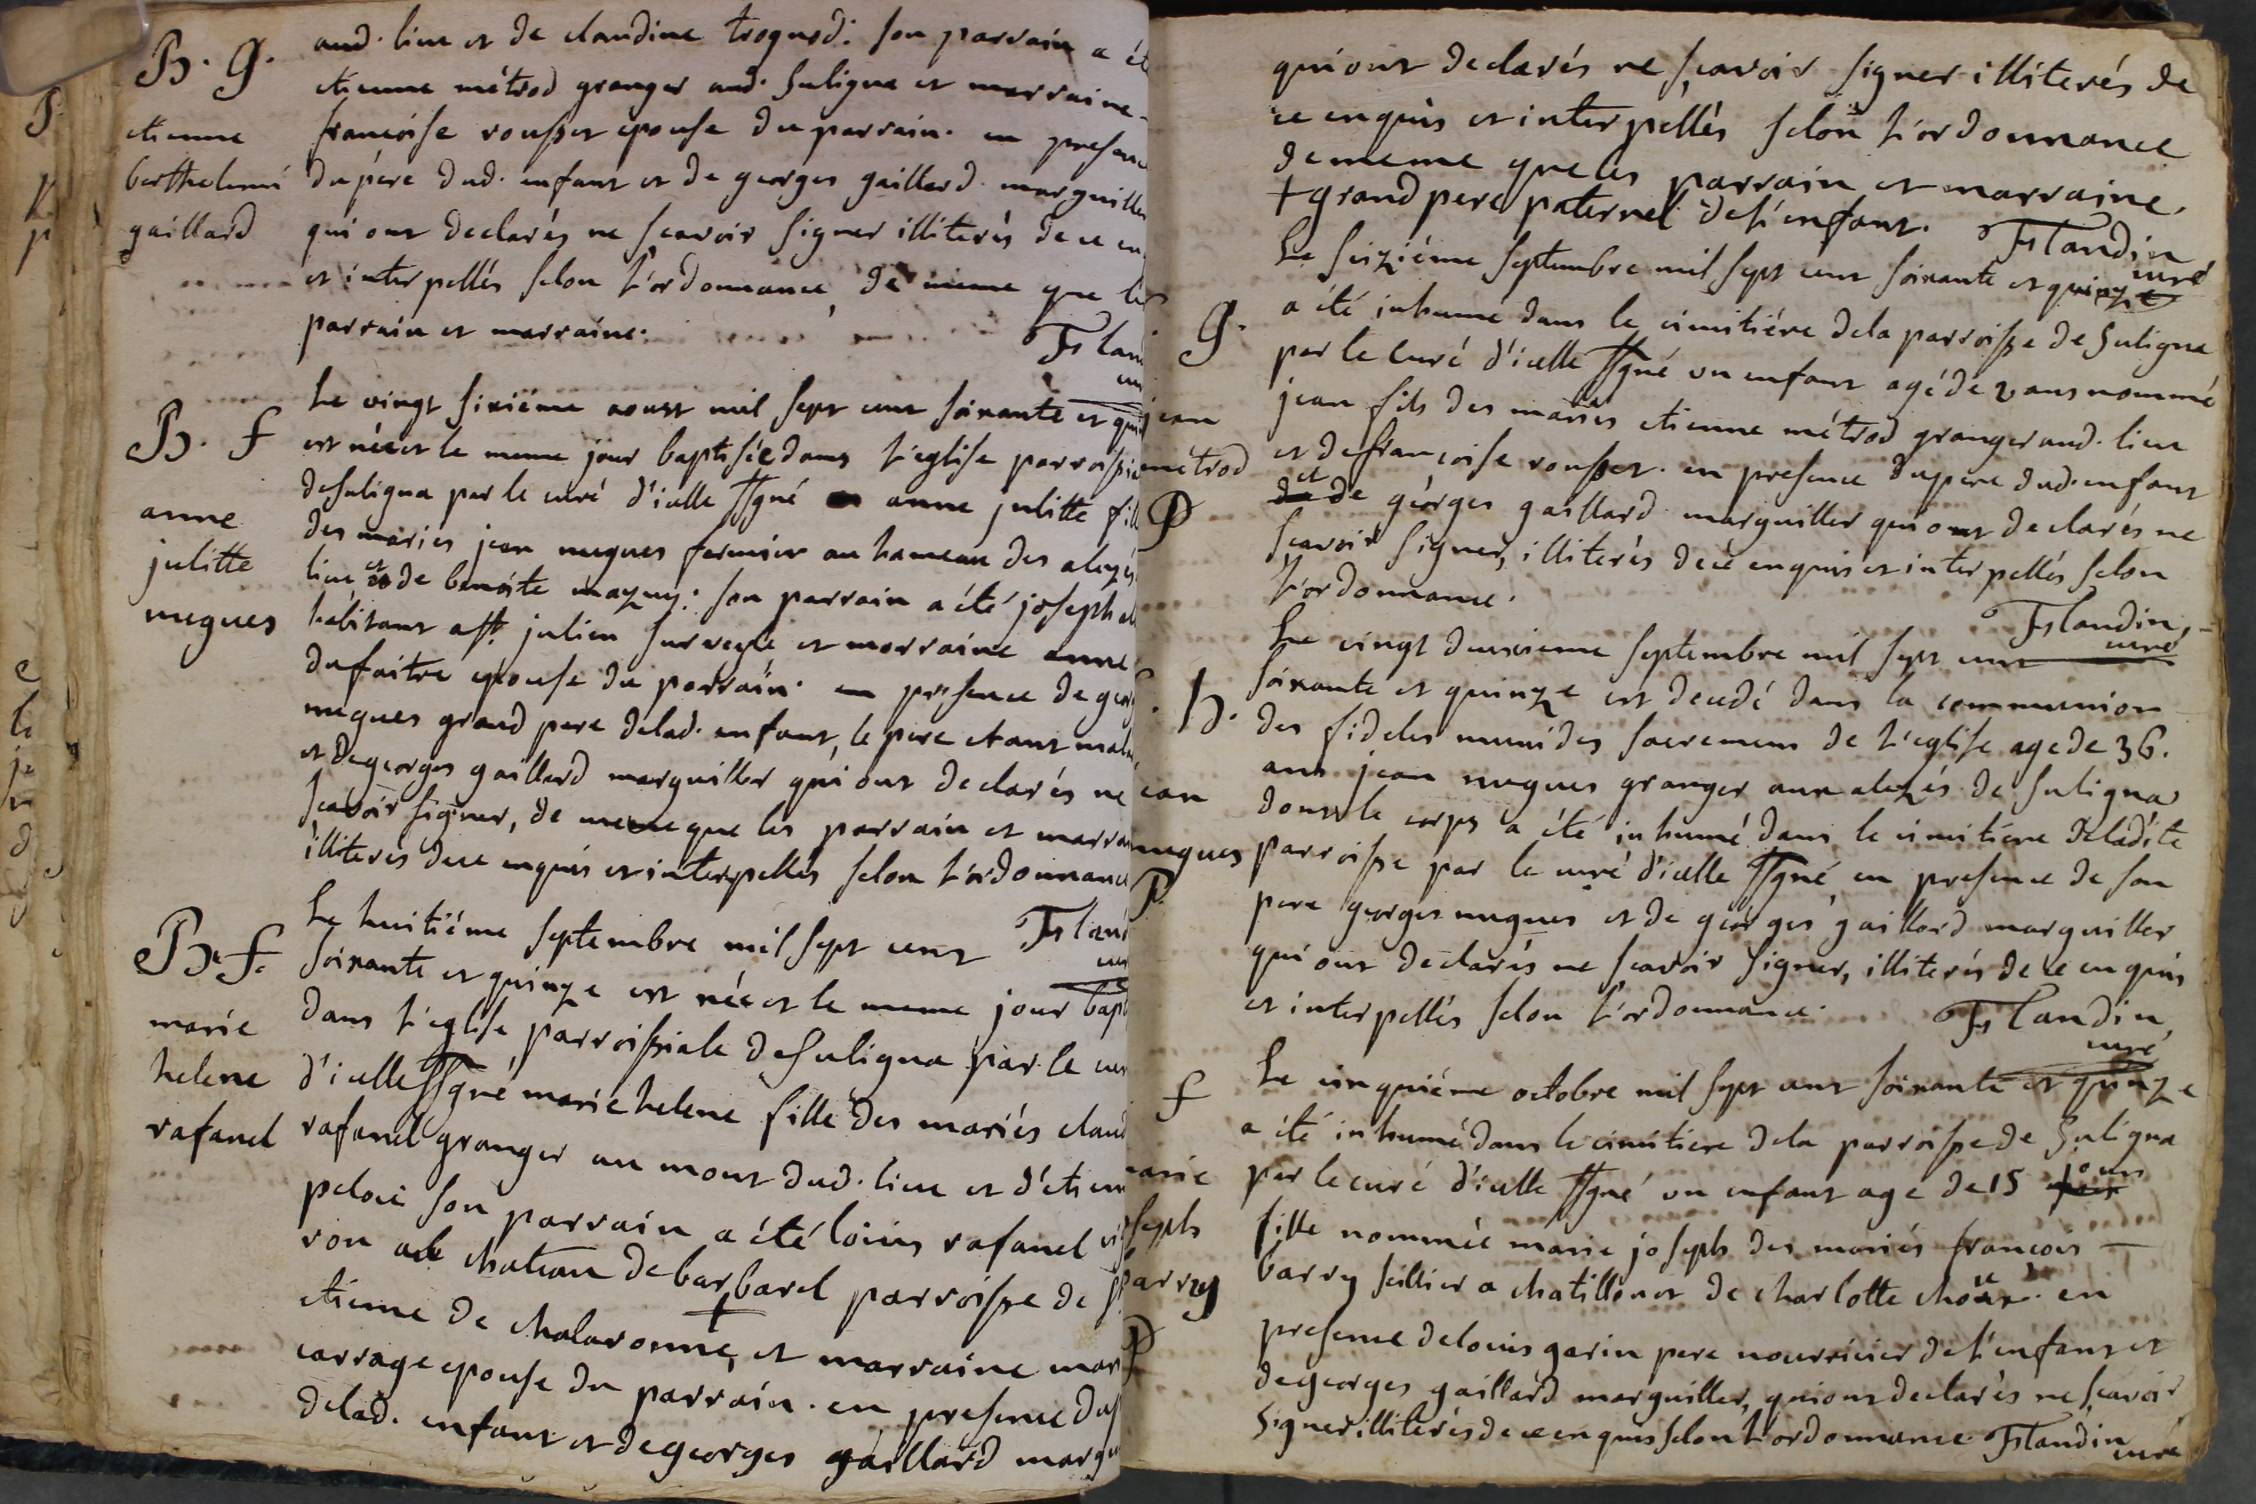 B. G.
etienne
berthelemi
gaillard
aud. lieu et de claudine trognod. son parrain a été
etienne métrod granger aud. Suligna et marraine
francoise rousset epouse du parrain. en presen
du père dud. enfant et de georges gaillard. marguiller
qui ont declarés ne scavoir signer illiterés de ce en
et interpellés selon l'ordonnance, de meme que les
parrain et marraine.
Flan
B. f
anne
julitte
nugues
Le vingt sixiéme aoust mil sept cent soixante et qui
est née et le meme jour baptisée dans l'eglise parroissi
de suligna par le curé d'icelle ssgné anne julitte fill
des mariés jean nugues fermier au hameau des alezés
lieu et de benoite mazuy: son parrain a été joseph
habitant a st julien sur veyle et marraine anne
dufaitre epouse du parrain. en presence de geor
nugues grand pere delad. enfant, le pere etant mala
et de georges gaillard marguiller qui ont declarés ne
scavoir signer, de meme que les parrain et marra
illiterés de ce enquis et interpellés selon l'ordonnance
Fland
B. f.
marie
helene
rafanel
Le huitiéme septembre mil sept cent
soixante et quinze est née et le meme jour bapt
dans l'eglise parroissiale de suligna par le cur
d'icelle ssgné marie helene fille des mariés claud
rafanel granger au mont dud. lieu et d'etien
peloü son parrain a été louis rafanel vi
ron au chateau de barbarel parroisse de
etienne de chalaronne, + et marraine mar
carrage epouse du parrain. en presence du
delad. enfant et de georges gaillard margu
qui ont declarés ne scavoir signer illiterés de
ce enquis et interpellés selon l'ordonnance
de meme que les parrain et marraine.
+ grand pere paternel de l'enfant.
Flandin
curé
G.
jean
métrod
P
Le seiziéme septembre mil sept cent soixante et quinze
a été inhumé dans le cimitiére de la parroisse de Suligna
par le Curé d'icelle ssgné un enfant agé de 2 ans nommé
jean fils des mariés etienne métrod granger aud. lieu
et de francoise rousset. en presence du pere dud. enfant
et de georges gaillard marguiller qui ont declarés ne
scavoir signer, illiterés de ce enquis et interpellés selon
l'ordonnance.
Flandin,
curé
h.
ean
nugues
P.
Le vingt deuxieme septembre mil sept cent
soixante et quinze est decedé dans la communion
des fideles muni des sacremens de l'eglise age de 36.
ans jean nugues granger aux alezés de suligna
dont le corps a été inhumé dans le cimitiere deladite
parroisse par le curé d'icelle ssgné en presence de son
pere georges nugues et de georges gaillard marguiller
qui ont declarés ne scavoir signer, illiterés de ce enquis
et interpellés selon l'ordonnance.
Flandin,
curé
f
arie
seph
barry
P
Le cinquiéme octobre mil sept cent soixante et quinze
a été inhumé dans le cimitiere de la parroisse de Suligna
par le curé d'icelle ssgné un enfant age de 15 jours
fille nommée marie joseph des mariés francois
barry sellier a chatillon et de charlotte en
presence de louis garin pere nourricier de l'enfant et
de georges gaillard marguiller, qui ont declarés ne scavoir
signer illiterés de ce enquis selon l'ordonnance Flandin
curé